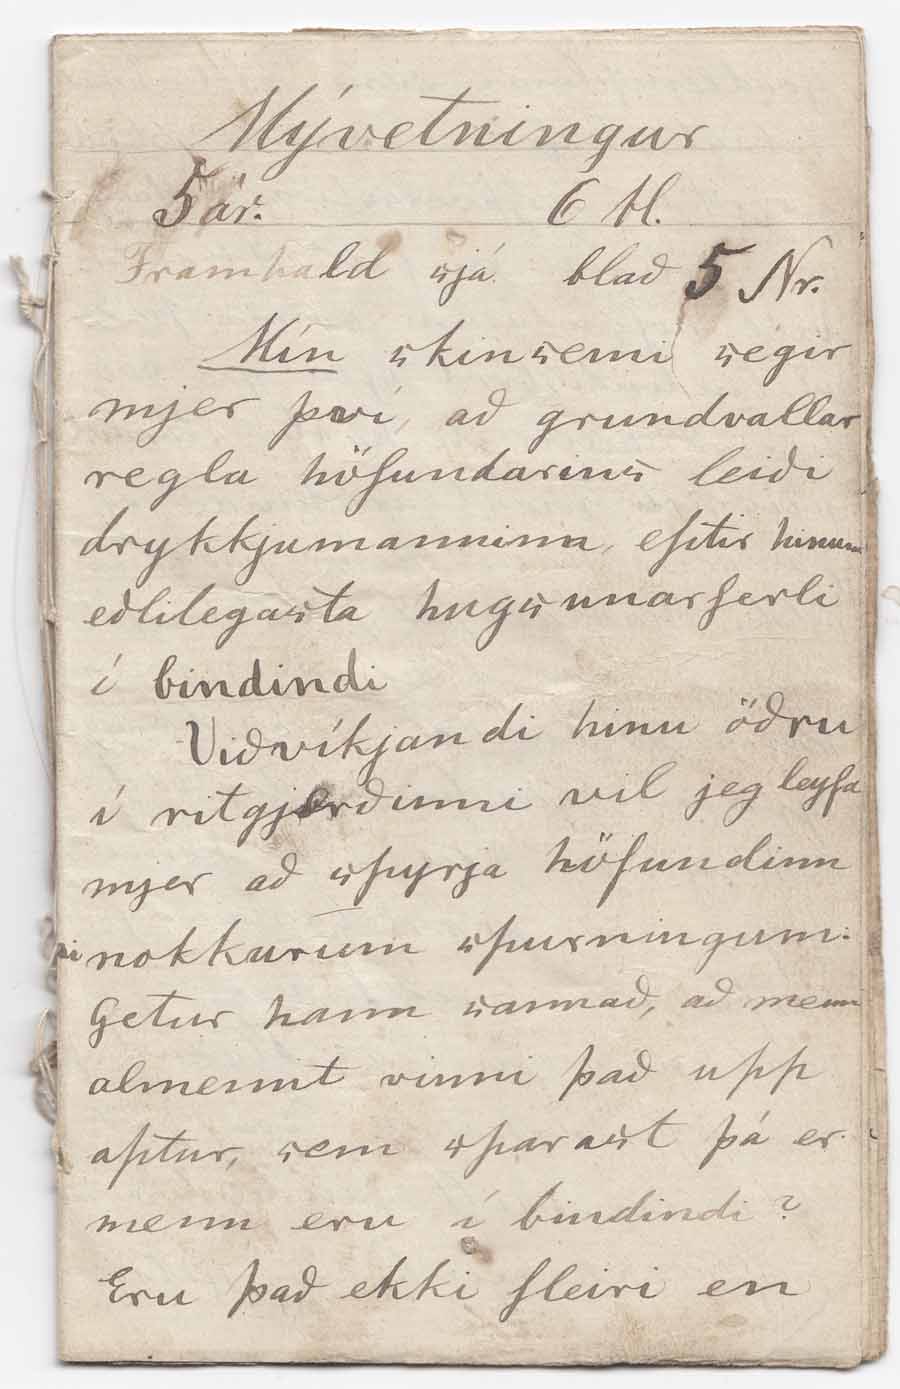 Mývetningur
5 ár. 6 bl.
Framhald sjá blað 5 Nr.
Mín skinsemi segir
mjer því, að grundvallar
regla höfundarins leiði
drykkjumanninn, eptir hinum
eðlilegasta hugsunarferli
í bindindi
Viðvíkjandi hinu öðru
í ritgjörðinni vil jeg leyfa
mjer að spyrja höfundinn
nokkurum spurningum:
Getur hann sannað, að menn
almennt vinni það upp
aptur, sem sparast þá er
menn eru í bindindi?
Eru það ekki fleiri en